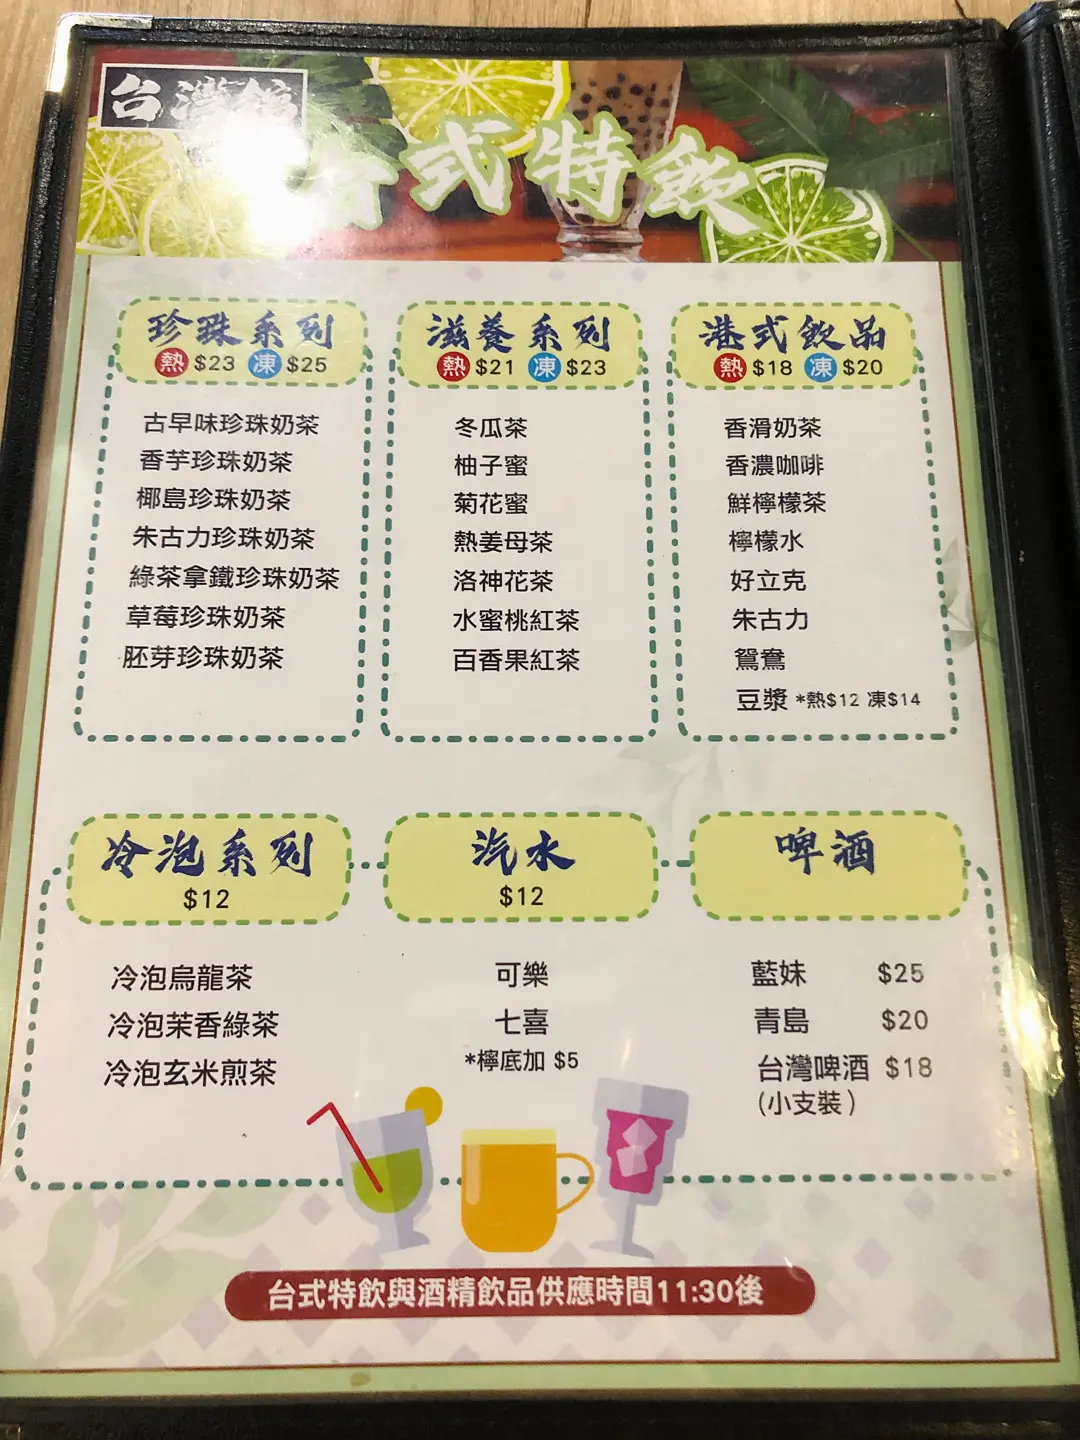 台灣館
台式特飲
珍珠系列
熱 $23 凍 $25
古早味珍珠奶茶
香芋珍珠奶茶
椰島珍珠奶茶
朱古力珍珠奶茶
綠茶拿鐵珍珠奶茶
草莓珍珠奶茶
胚芽珍珠奶茶
滋養系列
熱 $21 凍 $23
冬瓜茶
柚子蜜
菊花蜜
熱姜母茶
洛神花茶
水蜜桃紅茶
百香果紅茶
港式飲品
熱 $18 凍 $20
香滑奶茶
香濃咖啡
鮮檸檬茶
檸檬水
好立克
朱古力
鴛鴦
豆漿 *熱$12 凍$14
冷泡系列
$12
冷泡烏龍茶
冷泡茉香綠茶
冷泡玄米煎茶
汽水
$12
可樂
七喜
*檸底加 $5
啤酒
藍妹 $25
青島 $20
台灣啤酒 $18
(小支裝)
台式特飲與酒精飲品供應時間11:30後